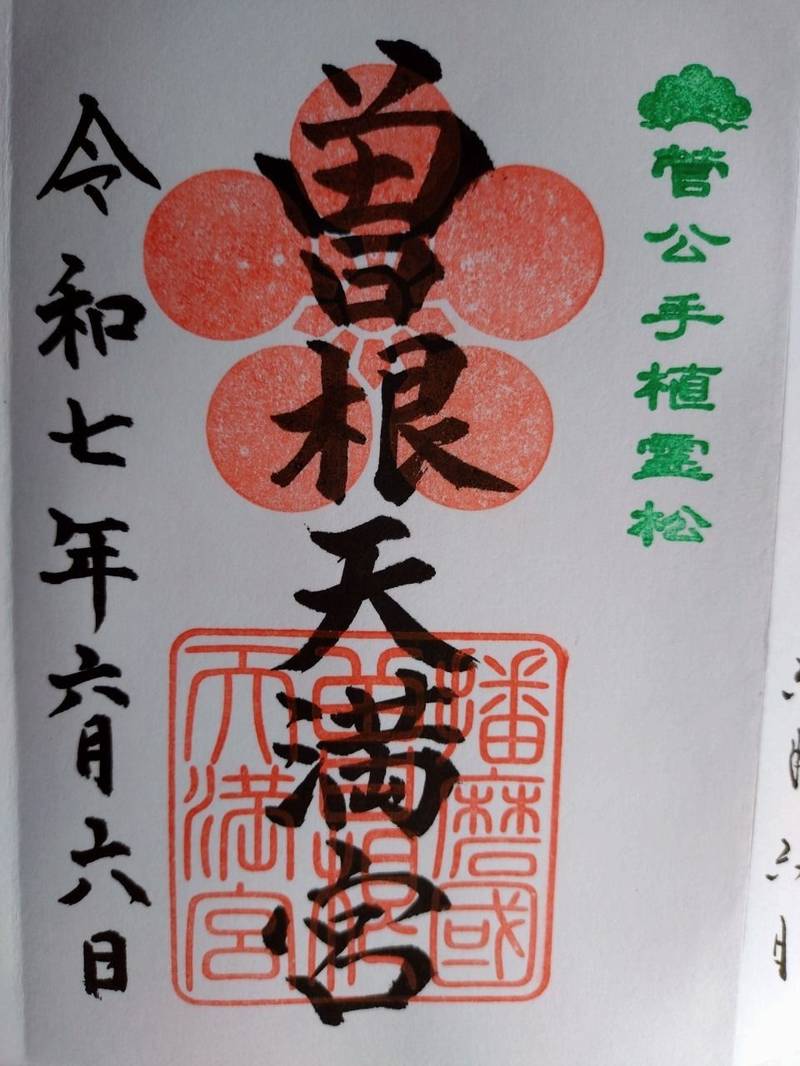 菅公手植霊松
曽根天満宮
播磨國
曽根
天満宮
令和七年六月六日